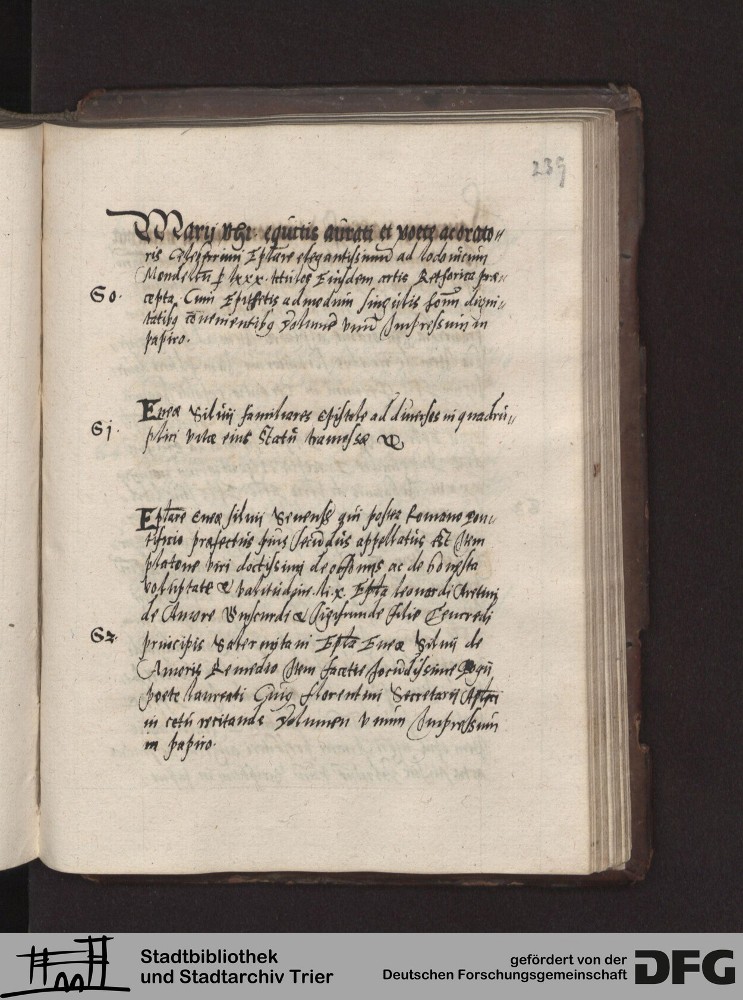 239
Marij phi: equitis aurati et poete ac orato„
ris Celeberrimi Eplare elegantissimū ad lodouicum
Mondeltū lxxx. titulos Eiusdem artis Rethorica præ„
So. cepta Cum Epithetis admodum singulis homī digni„
tatibq cōuenientibq Volumē vnū Impressum in
papiro.
Sj. Eneæ Siluij familiares epistole ad diuersos in quadru„
plici vitæ eius statū transmissæ &
Eplare eneæ siluij Senensis qui postea Romano pon„
tifitio præfectus pius secūdus appellatus est Item
platone viri doctissimi de obsonijs ac de honesta
voluptate & valitudine li. x. Epla leonardi Aretini
de Amore Guiscardi & Sigismunde filie Tancredi
S2. principis Salernitani Epla Eneæ Siluij de
Amoris Remedio Item facetie Jocūdissime Pogij
poete laureati Ciuis florentini Secretarij Aplici
in cetū recitande Volumen vnum Impressum
in papiro.
Stadtbibliothek
und Stadtarchiv Trier
gefördert von der
Deutschen Forschungsgemeinschaft
DFG